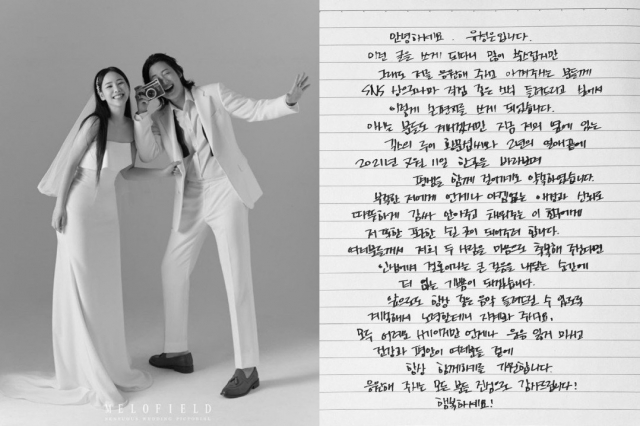 안녕하세요. 유성은입니다.
이런 글을 쓰게 되다니 많이 쑥스럽지만
그래도 저를 응원해 주시고 아껴주시는 분들께
SNS 상으로나마 직접 좋은 소식 들려드리고 싶어서
이렇게 손편지를 쓰게 되었습니다.
아시는 분들도 계시겠지만 지금 저의 옆에 있는
긱스의 루이 황문섭씨와 2년의 연애끝에
2021년 7월 11일 한곳을 바라보며
평생을 함께 걸어가기로 약속하였습니다.
부족한 저에게 언제나 아낌없는 애정과 신뢰로
따뜻하게 감싸 안아주고 채워주는 이 친구에게
저 또한 포근한 쉴 곳이 되어주려 합니다.
여러분들께서 저희 두 사람을 마음으로 축복해 주신다면
인생에서 결혼이라는 큰 걸음을 내딛는 순간에
더 없는 기쁨이 되겠습니다.
앞으로도 항상 좋은 음악 들려드릴 수 있도록
계속해서 노력할테니 지켜봐 주세요.
모두 어려운 시기이지만 언제나 웃음 잃지 마시고
건강과 평안이 여러분들 곁에
항상 함께하기를 기원합니다.
응원해 주시는 모든 분들 진심으로 감사드립니다!
행복하세요!
MELOFIELD